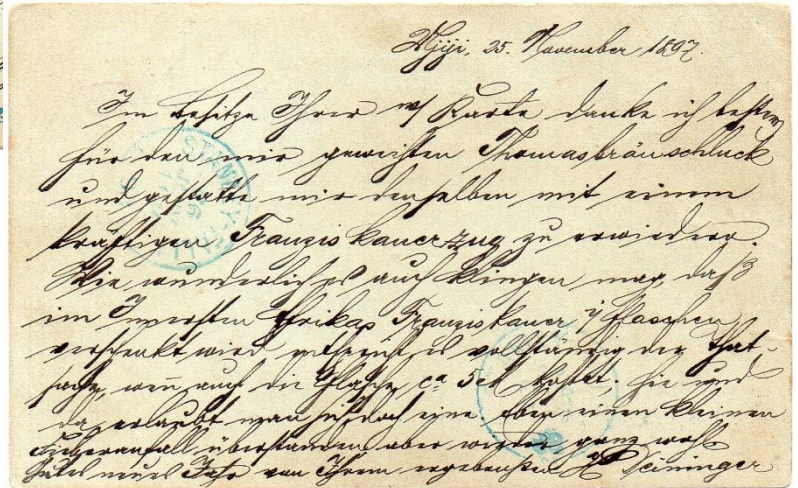 Ujiji, 25. November 1897.
Im Besitze Ihrer w/ Karte danke ich bestens
für den mir geweihten Thomasbräuschluck
und gestatte mir denselben mit einem
kräftigen Franziskanerzug zu erwiedern.
Wie wunderlich es auch klingen mag, daß
im Innersten Afrikas Franziskaner i/ Flaschen
verschenkt wird, entspricht es vollständig der That-
sache, wenn auch die Flasche ca 5 kostet. Hie und
da erlaubt man sich doch eine. einen kleinen
Fieberanfall überstanden aber wieder ganz wohl
Gutes neues Jahr von Ihrem ergebensten
STANLEY